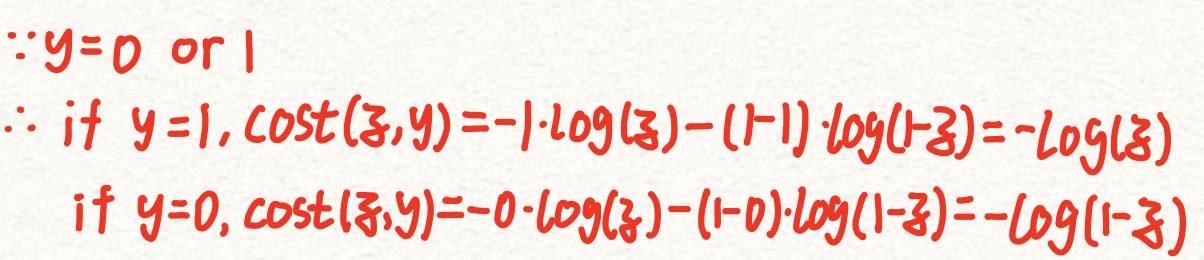 ∵ y=0 or 1
∴ if y=1, cost(z,y)=-1·log(z)-(1-1)·log(1-z)=-log(z)
if y=0, cost(z,y)=-0·log(z)-(1-0)·log(1-z)=-log(1-z)